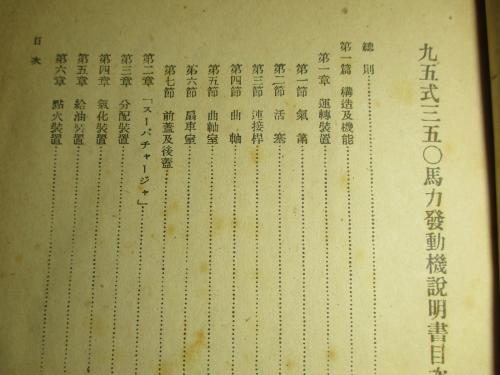 九五式三五〇馬力發動機說明書目次
總則
第一篇 構造及機能
第一章 運轉裝置
第一節 氣筩
第二節 活塞
第三節 連接桿
第四節 曲軸
第五節 曲軸室
第六節 扇車室
第七節 前蓋及後蓋
第二章 「スーパチャージャ」
第三章 分配裝置
第四章 氣化裝置
第五章 給油裝置
第六章 點火裝置
目次